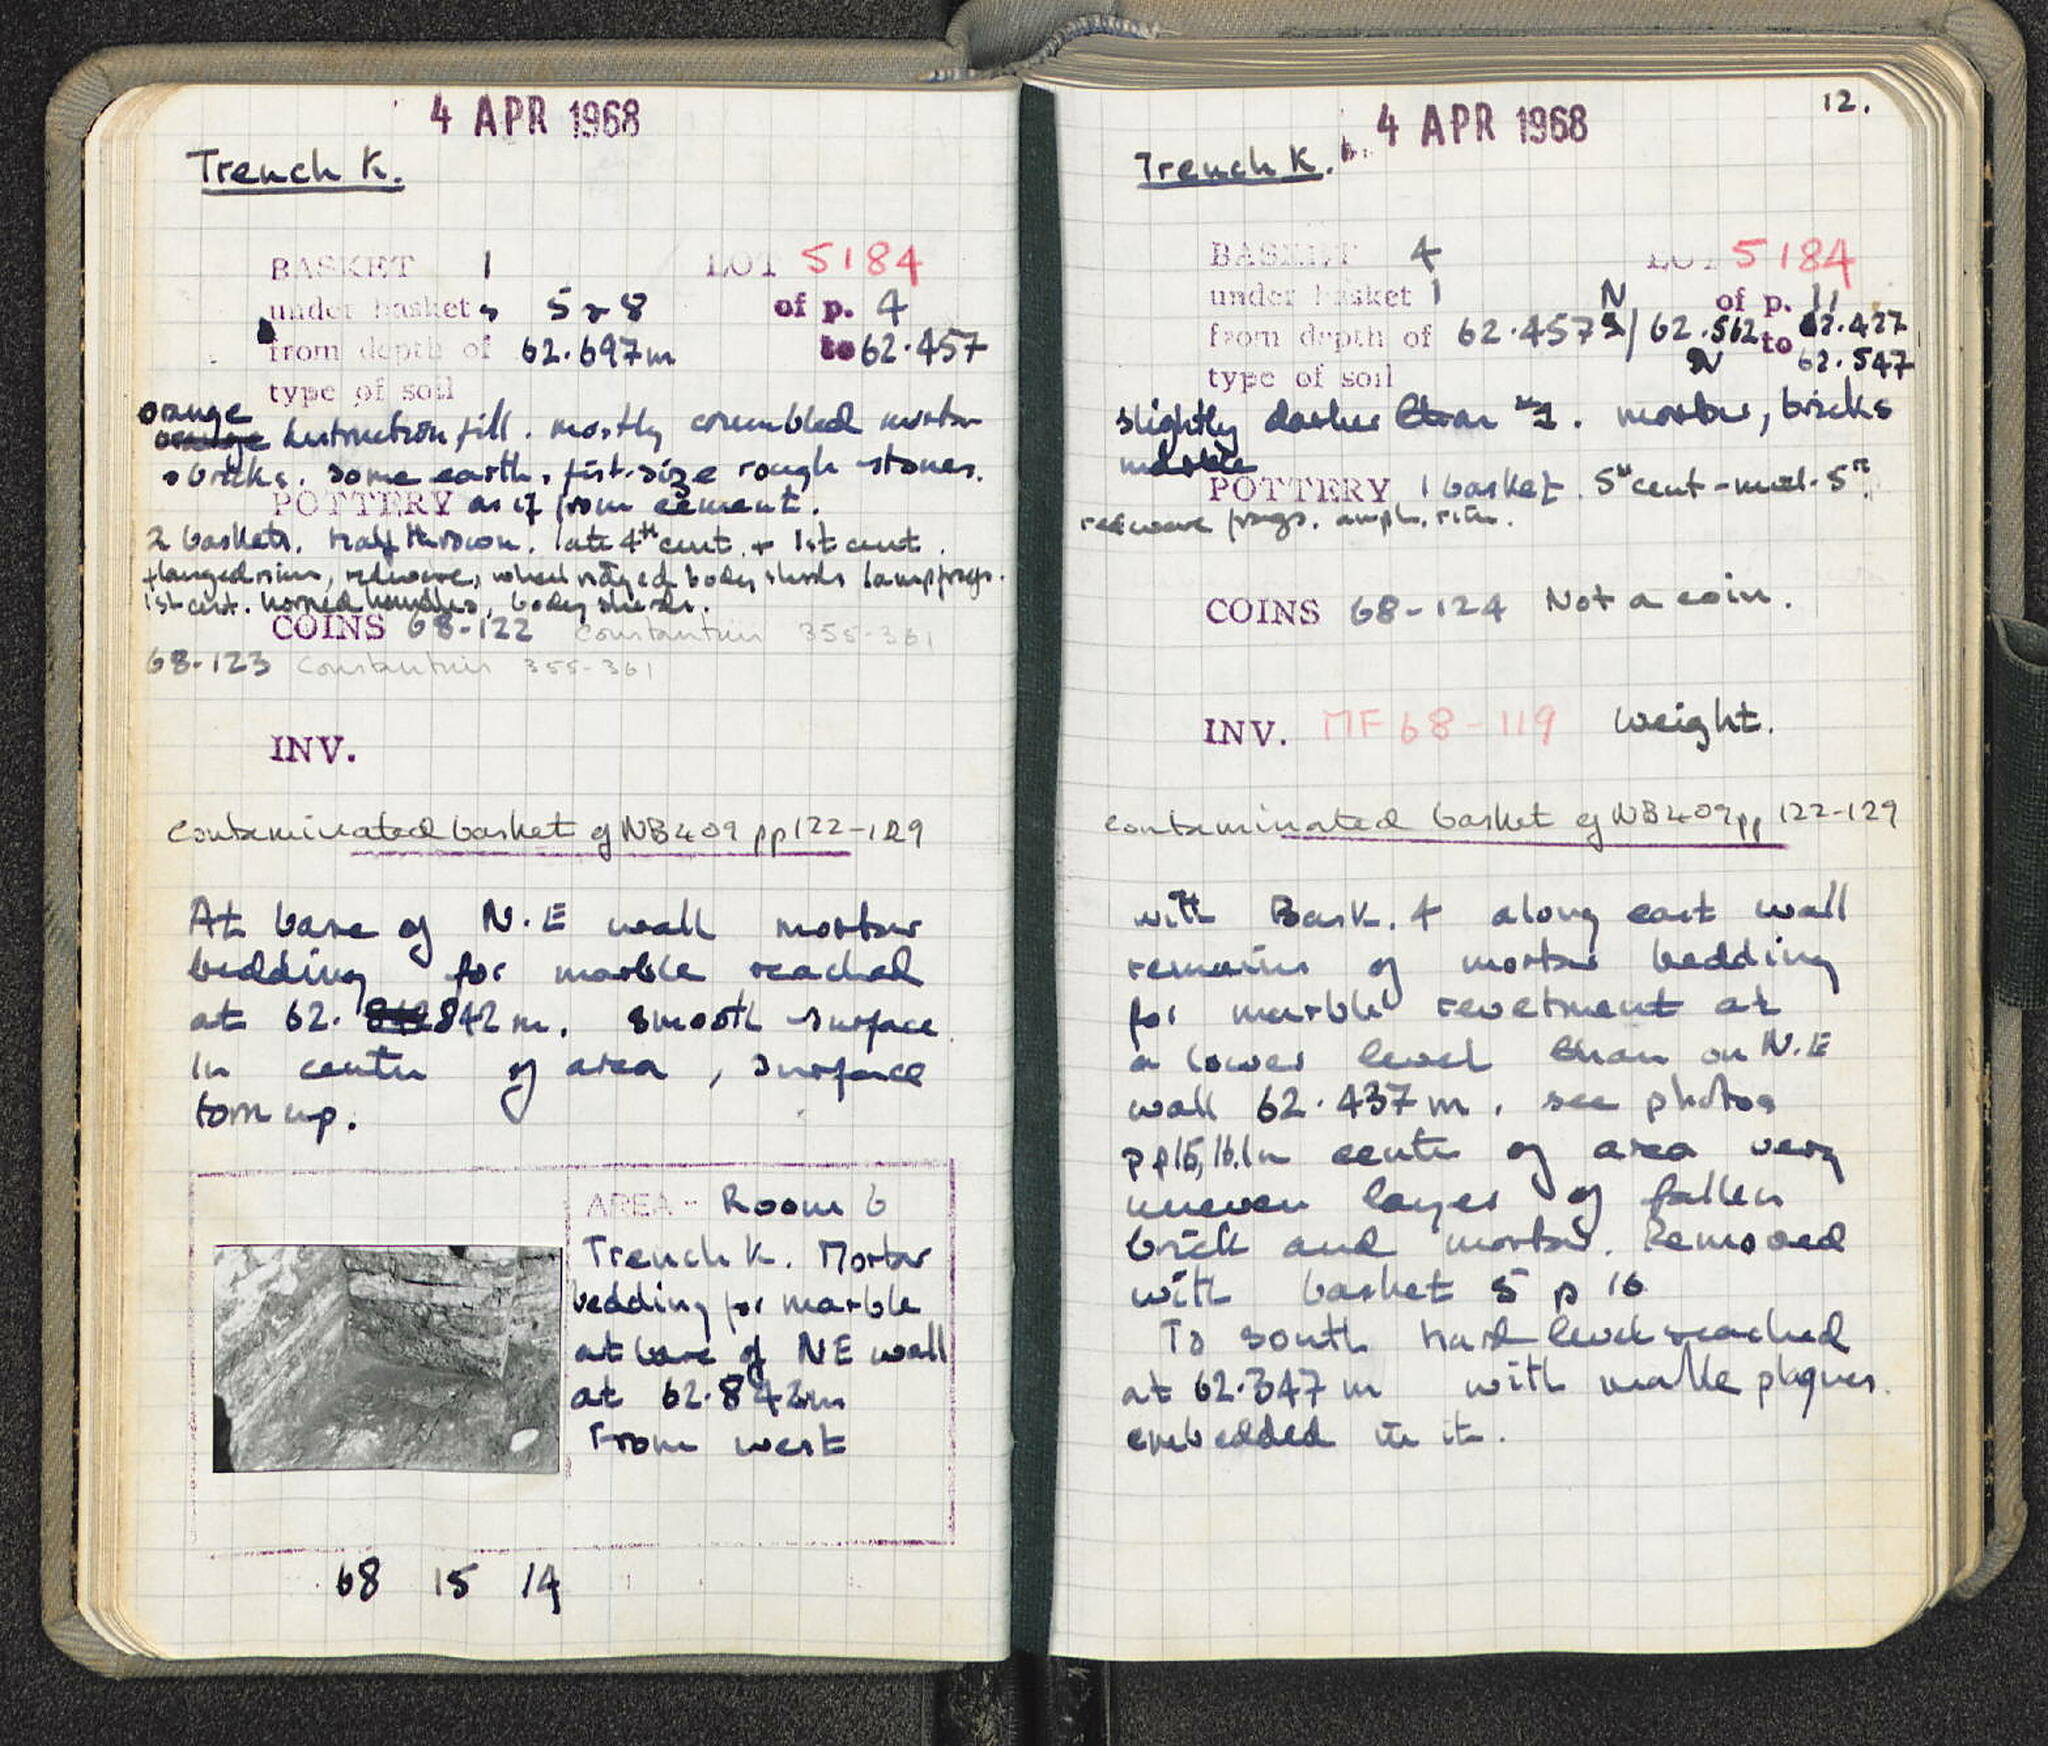 4 APR 1968
Trench K.
BASKET 1 LOT 5184
under baskets 5 & 8 of p. 4
from depth of 62.697m to 62.457
type of soil
orange
destruction fill. mostly crumbled mortar
& bricks. some earth, fist-size rough stones.
POTTERY as if from cement.
2 baskets. half thrown. late 4th cent. + 1st cent.
flanged rims, redware, wheel ridged body sherds lamp frags.
1st cent. horned handles, body sherds.
COINS 68-122 Constantius 355-361
68-123 Constantius 355-361
INV.
Contaminated basket cf NB409 pp122-129
At base of N.E wall mortar
bedding for marble reached
at 62. 842 m. smooth surface.
In center of area, surface
torn up.
AREA - Room 6
Trench K. Mortar
bedding for marble
at base of NE wall
at 62.842m
From west
68 15 14
12.
4 APR 1968
Trench K.
BASKET 4 LOT 5184
under basket 1 N of p. 11
from depth of 62.457 S/ 62.562 to 62.427
N 62.547
type of soil
slightly darker than #1. mortar, bricks
marble
POTTERY 1 basket. 5th cent - mid. 5th.
redware frags. amph. rim.
COINS 68-124 Not a coin.
INV. MF 68-119 Weight.
contaminated basket cf NB409 pp 122-129
with Bask. 4 along east wall
remains of mortar bedding
for marble revetment at
a lower level than on N.E
wall 62.437 m. see photos
pp15,16. In center of area very
uneven layer of fallen
brick and mortar. Removed
with basket 5 p 16
To south hard level reached
at 62.347 m with marble plaques.
embedded in it.